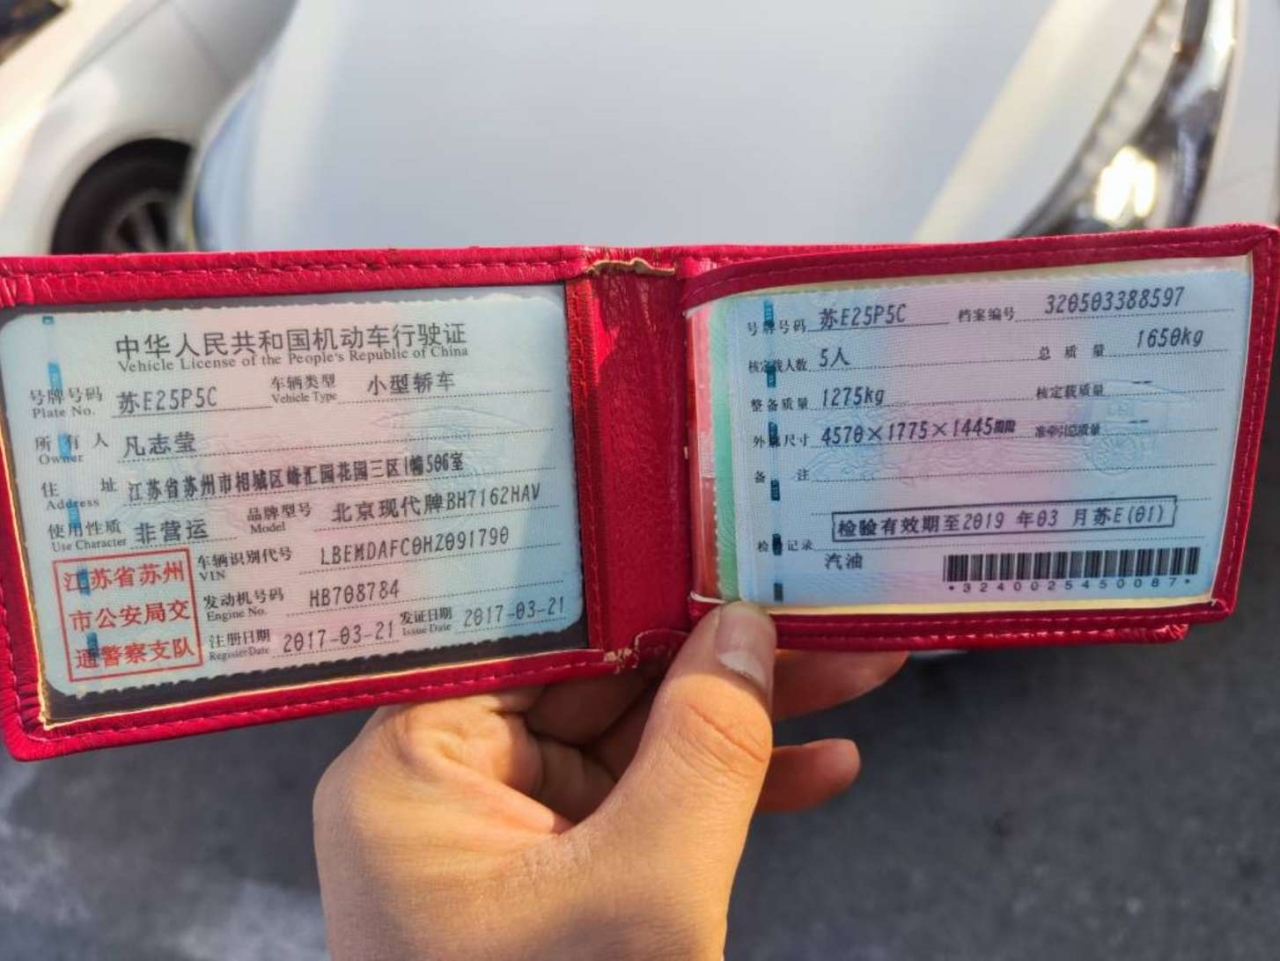 中华人民共和国机动车行驶证
Vehicle License of the People's Republic of China
号牌号码 苏E25P5C 车辆类型 小型轿车
Plate No. Vehicle Type
所有人 凡志莹
Owner
住址 江苏省苏州市相城区峰汇园花园三区1幢506室
Address
使用性质 非营运 品牌型号 北京现代牌BH7162HAV
Use Character Model
江苏省苏州
市公安局交
通警察支队
车辆识别代号 LBEMDAFC0HZ091790
VIN
发动机号码 HB708784
Engine No.
注册日期 2017-03-21 发证日期 2017-03-21
Register Date Issue Date
号牌号码 苏E25P5C 档案编号 320503388597
核定载人数 5人 总质量 1650kg
整备质量 1275kg 核定载质量 --
外廓尺寸 4570×1775×1445mm 准牵引总质量 --
备注
检验有效期至2019 年03 月苏E(01)
检验记录
汽油
*3240025450087*